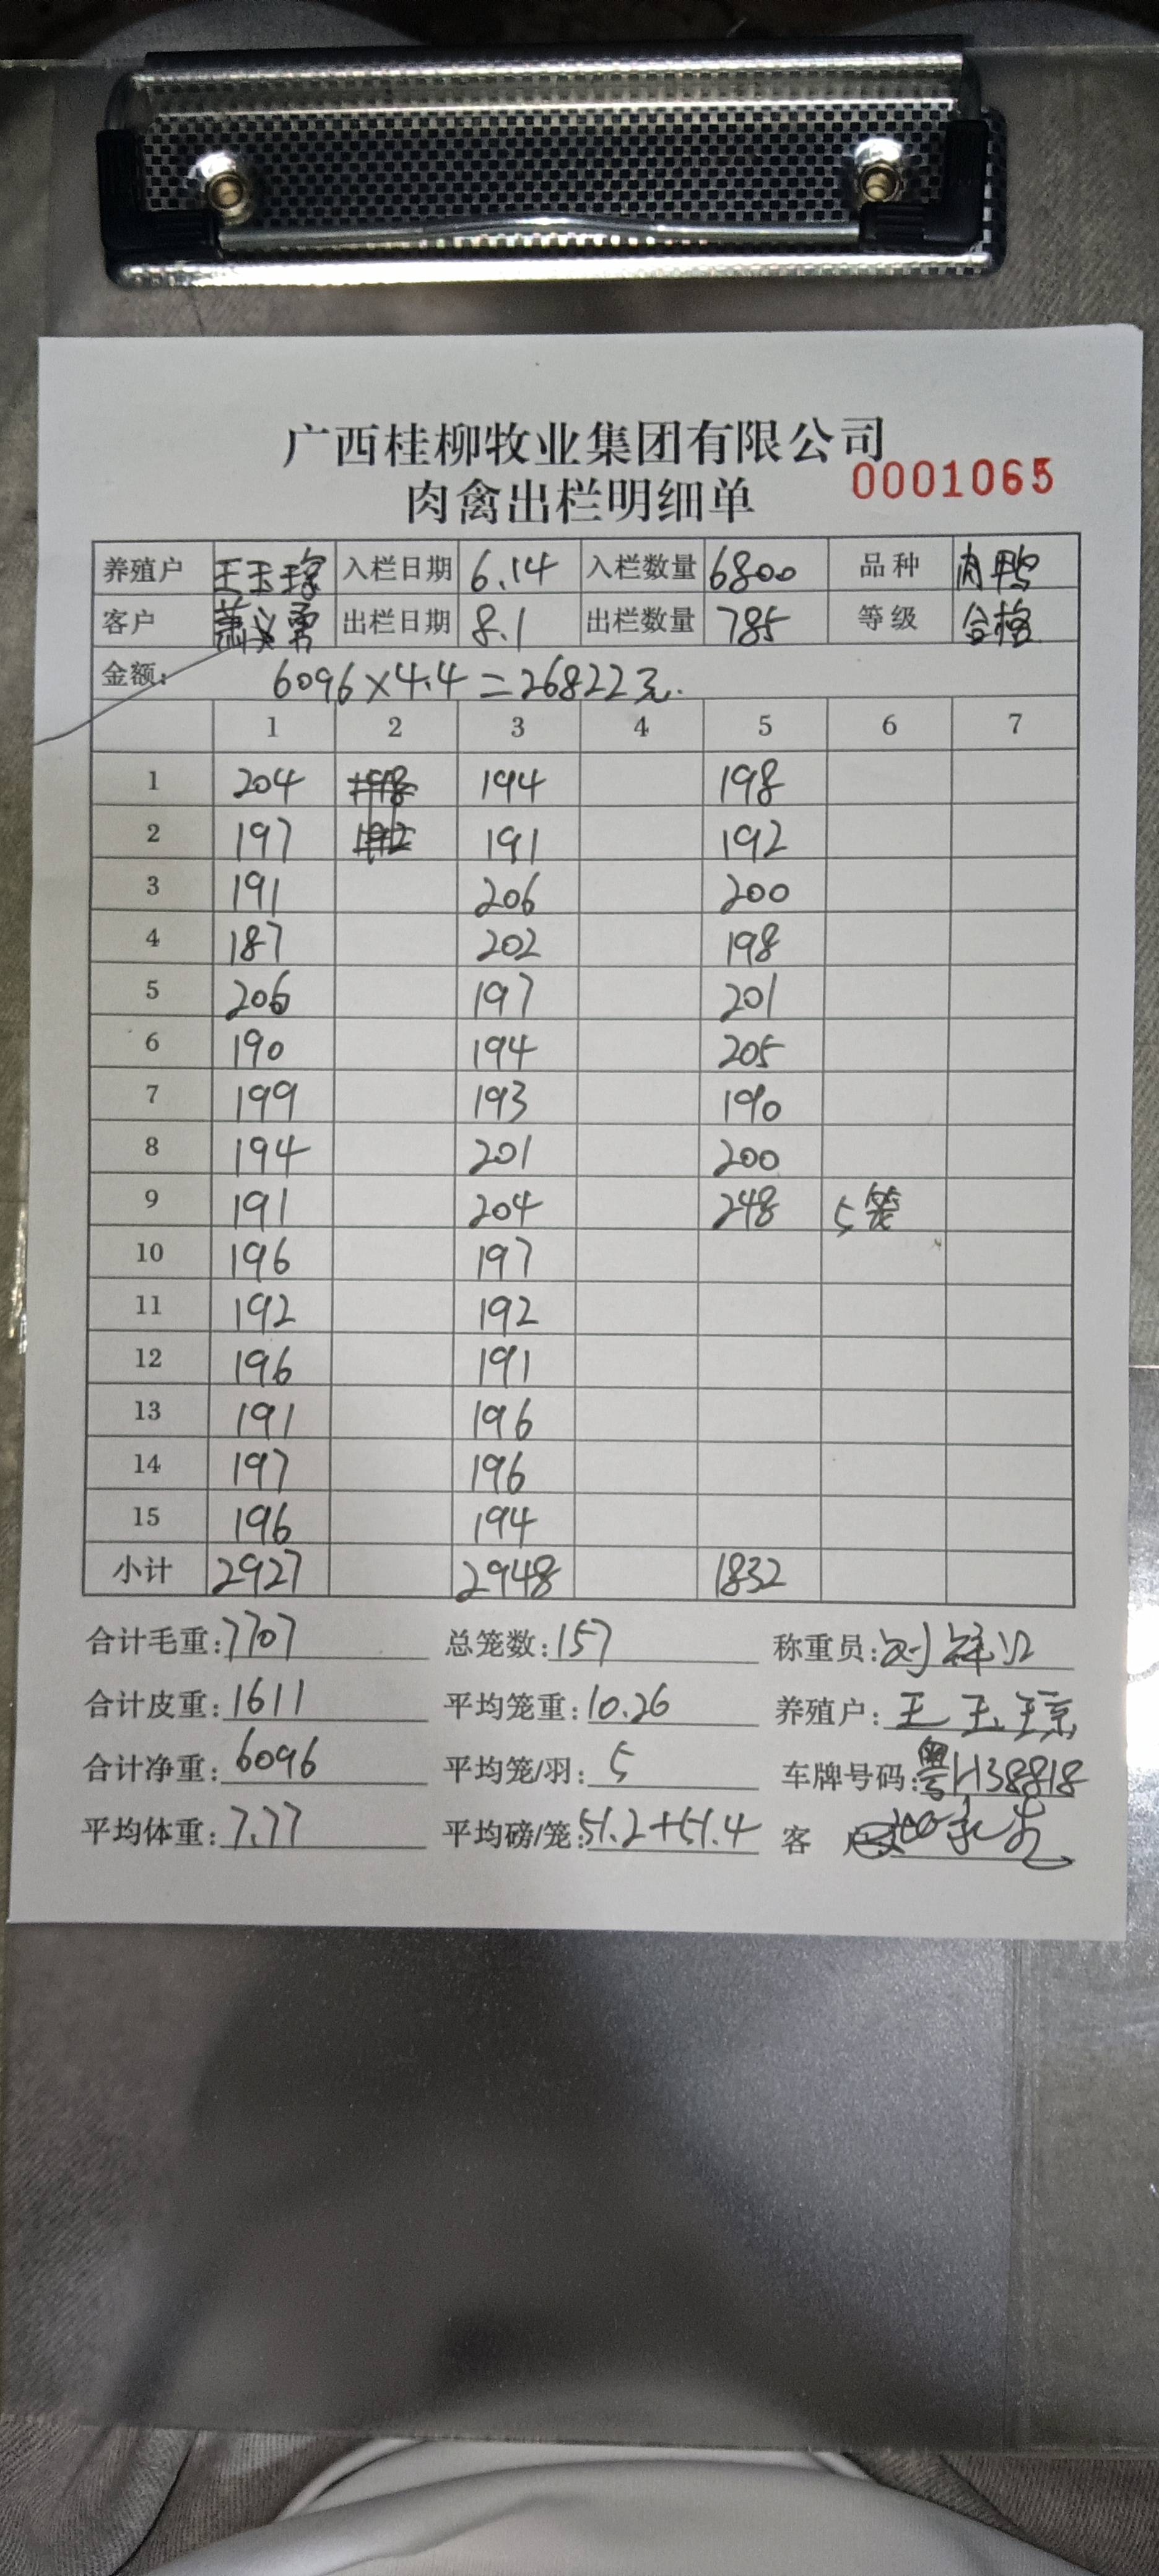 广西桂柳牧业集团有限公司
0001065
肉禽出栏明细单
养殖户 王玉琼 入栏日期 6.14 入栏数量 6800 品种 肉鸭
客户 萧义勇 出栏日期 8.1 出栏数量 785 等级 合格
金额: 6096×4.4=26822元.
1 2 3 4 5 6 7
1 204 198 194 198
2 197 192 191 192
3 191 206 200
4 187 202 198
5 206 197 201
6 190 194 205
7 199 193 190
8 194 201 200
9 191 204 248 5笼
10 196 197
11 192 192
12 196 191
13 191 196
14 197 196
15 196 194
小计 2927 2948 1832
合计毛重:7707 总笼数:157 称重员:刘祥
合计皮重:1611 平均笼重:10.26 养殖户:王玉琼
合计净重:6096 平均笼/羽:5 车牌号码:粤H38818
平均体重:7.77 平均磅/笼:51.2+51.4 客